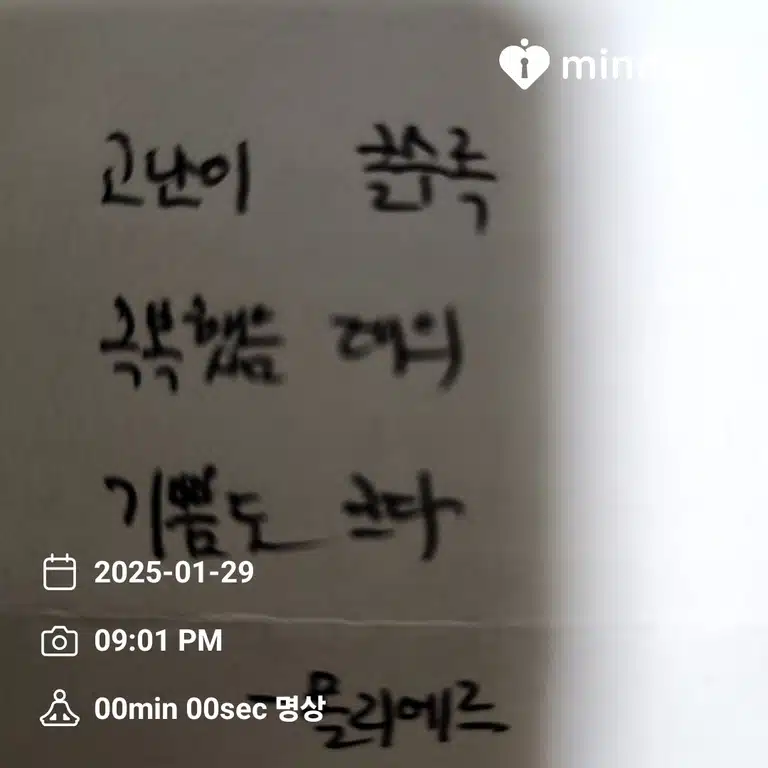 고난이 클수록
극복했음 때의
기쁨도 크다
2025-01-29
09:01 PM
00min 00sec 명상
-몰리에르